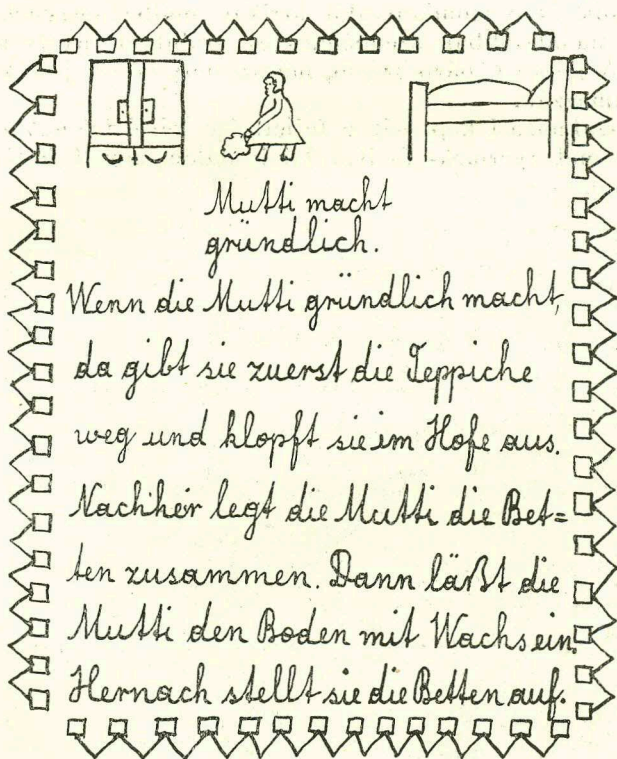 Mutti macht
gründlich.
Wenn die Mutti gründlich macht,
da gibt sie zuerst die Teppiche
weg und klopft sie im Hofe aus.
Nachher legt die Mutti die Bet=
ten zusammen. Dann läßt die
Mutti den Boden mit Wachs ein.
Hernach stellt sie die Betten auf.